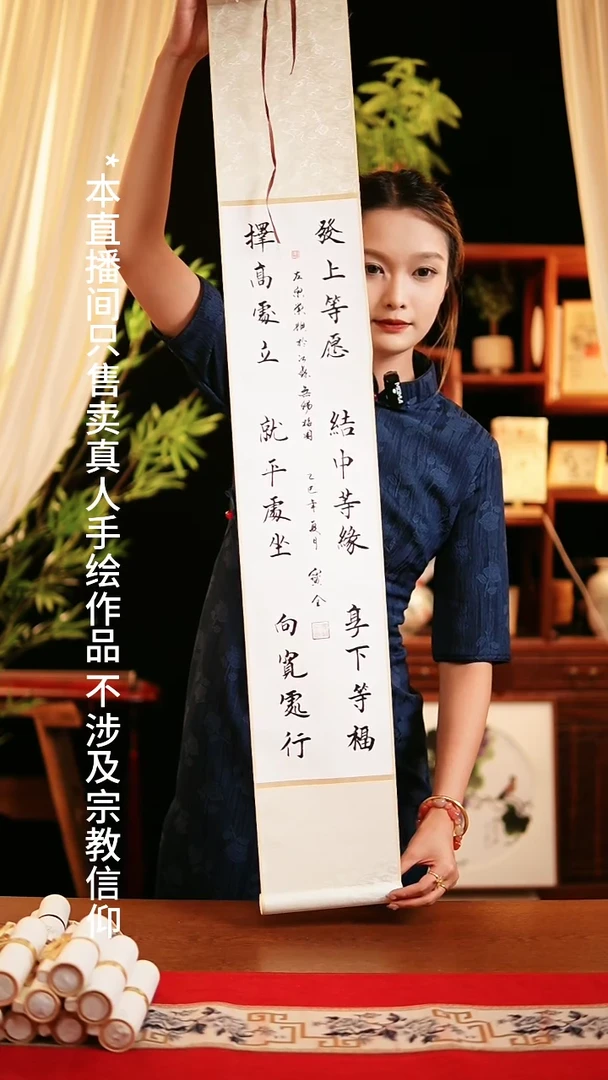 *本直播间只售卖真人手绘作品 不涉及宗教信仰
發上等愿 結中等緣 享下等福
左宗棠題於江蘇無錫梅園 乙巳年夏月
擇高處立 就平處坐 向寬處行